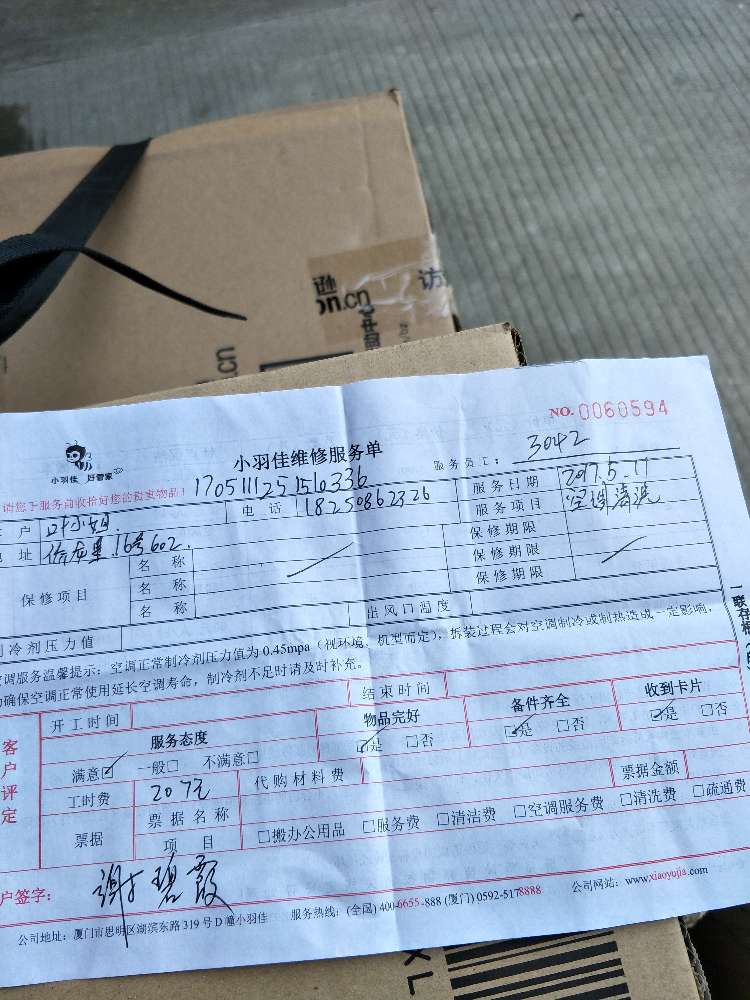 逊
on.cn
访
.cn
小羽佳 好管家
小羽佳维修服务单
NO. 0060594
服务员工: 3042
请您于服务前收拾好您的贵重物品!
1705111251510336
户 叶小姐. 电话 18250862326 服务日期 2017.5.11
地址 16号602. 服务项目 空调清洗
保修项目 名称 保修期限
名称 保修期限
名称 保修期限
冷剂压力值 出风口温度
调服务温馨提示: 空调正常制冷剂压力值为 0.45mpa (视环境、机型而定), 拆装过程会对空调制冷或制热造成一定影响,
确保空调正常使用延长空调寿命, 制冷剂不足时请及时补充。
开工时间 结束时间
客户评定
服务态度 物品完好 备件齐全 收到卡片
满意☑ 一般□ 不满意□ ☑是 □否 ☑是 □否 ☑是 □否
工时费 207元 代购材料费 票据金额
票据 票据名称
项目 □搬办公用品 □服务费 □清洁费 □空调服务费 □清洗费 □疏通费
户签字: 谢碧霞
公司地址: 厦门市思明区湖滨东路 319 号 D 幢小羽佳 服务热线: (全国) 400-6655-888 (厦门) 0592-5178888 公司网站: www.xiaoyujia.com
XL